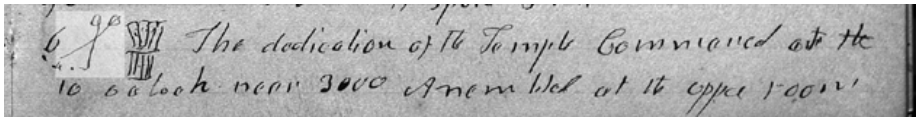 6 The dedication of the Temple Commenced at the
10 oclock near 3000 Assembled at the upper room